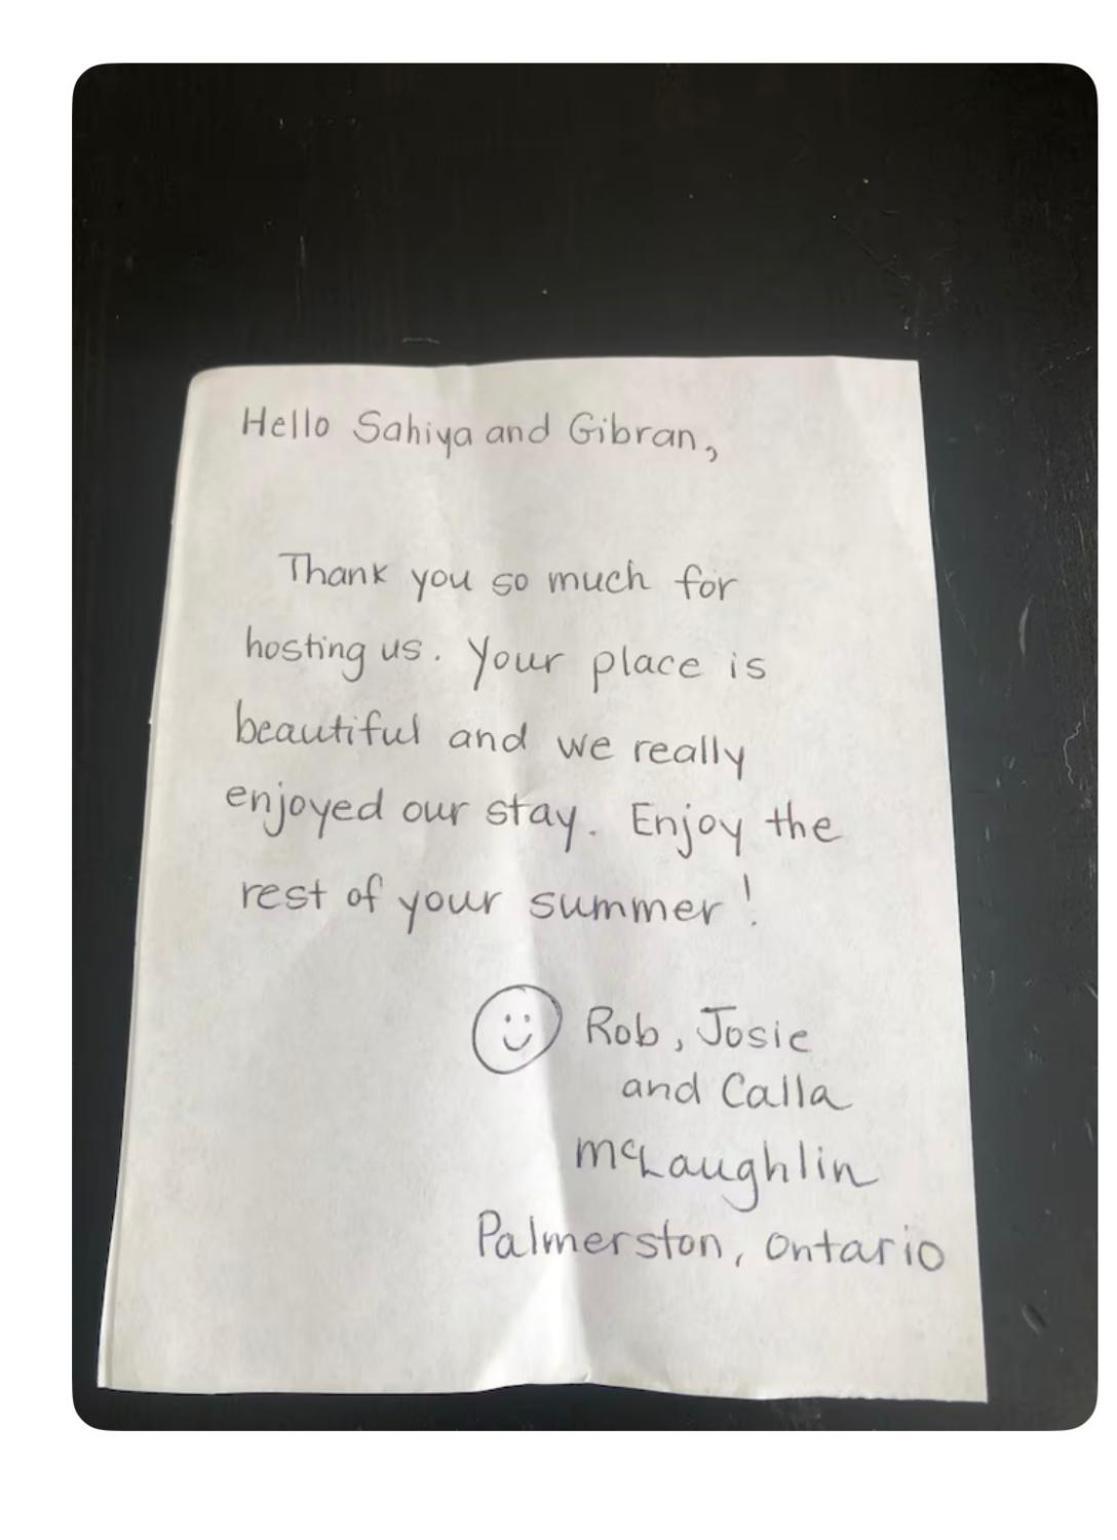 Hello Sahiya and Gibran,
Thank you so much for
hosting us. Your place is
beautiful and we really
enjoyed our stay. Enjoy the
rest of your summer!
Rob, Josie
and Calla
McLaughlin
Palmerston, Ontario